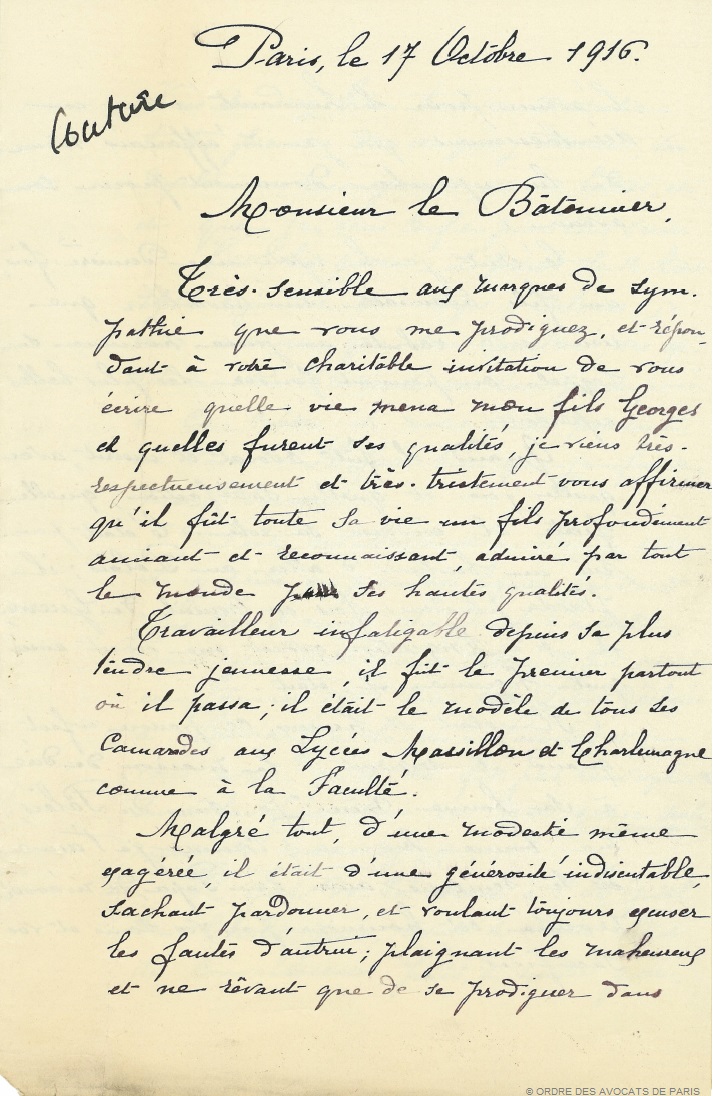 Paris, le 17 Octobre 1916.
Couture
Monsieur le Bâtonnier,
Très-sensible aux marques de sym-
pathie que vous me prodiguez, et répon-
dant à votre charitable invitation de vous
écrire quelle vie mena mon fils Georges
et quelles furent ses qualités, je viens très-
respectueusement et très-tristement vous affirmer
qu'il fût toute sa vie un fils profondément
aimant et reconnaissant, admiré par tout
le monde pour ses hautes qualités.
Travailleur infatigable depuis sa plus
tendre jeunesse, il fût le premier partout
où il passa; il était le modèle de tous ses
Camarades aux Lycées Massillon et Charlemagne
comme à la Faculté.
Malgré tout, d'une modestie même
exagérée, il était d'une générosité indiscutable,
sachant pardonner, et voulant toujours excuser
les fautes d'autrui; plaignant les malheureux
et ne rêvant que de se prodiguer dans
© ORDRE DES AVOCATS DE PARIS